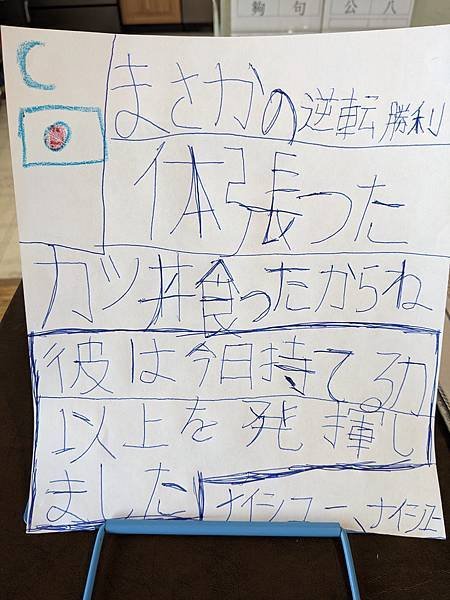 句 公 八
まさかの逆転勝利
体張った
カツ丼食ったからね
彼は今日持てる力
以上を発揮し
ました
ナイシュー、ナイシュー